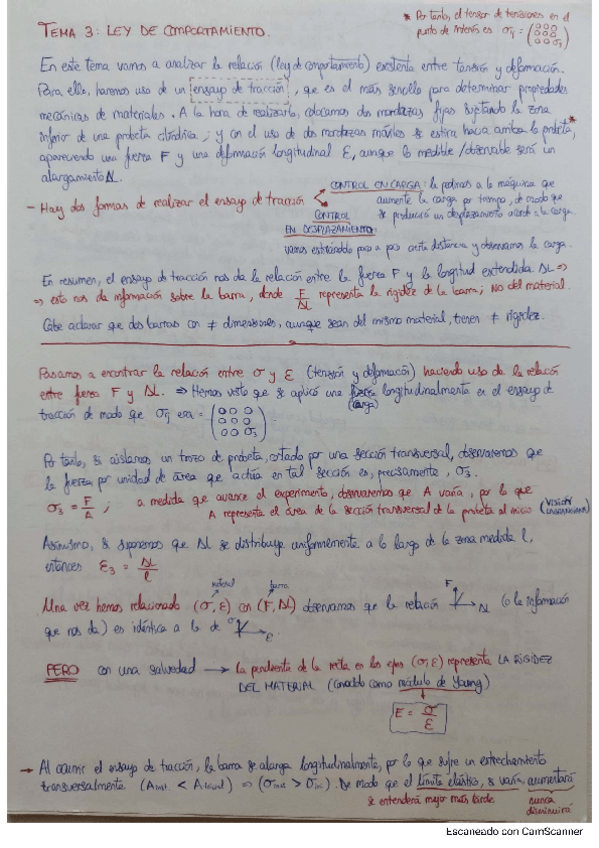 TEMA 3: LEY DE COMPORTAMIENTO.
* Por tanto, el tensor de tensiones en el
punto de interés es σij = (000 000 00σ3)
En este tema vamos a analizar la relación (ley de comportamiento) existente entre tensión y deformación.
Para ello, haremos uso de un ensayo de tracción, que es el más sencillo para determinar propiedades
mecánicas de materiales. A la hora de realizarlo, colocamos dos mordazas fijas sujetando la zona
inferior de una probeta cilíndrica; y con el uso de dos mordazas móviles se estira hacia arriba la probeta,*
apareciendo una fuerza F y una deformación longitudinal ε, aunque lo medible/observable será un
alargamiento ΔL.
- Hay dos formas de realizar el ensayo de tracción
CONTROL EN CARGA: le pedimos a la máquina que
aumente la carga por tiempo, de modo que
se producirá un desplazamiento acorde a la carga.
CONTROL
EN DESPLAZAMIENTO:
vamos estirándolo poco a poco cierta distancia y observamos la carga.
En resumen, el ensayo de tracción nos da la relación entre la fuerza F y la longitud extendida ΔL ⇒
⇒ esto nos da información sobre la barra, donde F/ΔL representa la rigidez de la barra; NO del material.
Cabe aclarar que dos barras con ≠ dimensiones, aunque sean del mismo material, tienen ≠ rigidez.
Pasamos a encontrar la relación entre σ y ε (tensión y deformación) haciendo uso de la relación
entre fuerza F y ΔL. ⇒ Hemos visto que se aplicó una fuerza longitudinalmente en el ensayo de
(carga)
tracción de modo que σij era = (000 000 00σ3)
Por tanto, si aislamos un trozo de probeta, cortado por una sección transversal, observaremos que
la fuerza por unidad de área que actúa en tal sección es, precisamente, σ3.
σ3 = F/A ; a medida que avance el experimento, observaremos que A varía, por lo que
A representa el área de la sección transversal de la probeta al inicio (VISIÓN
Asimismo, si suponemos que ΔL se distribuye uniformemente a lo largo de la zona medida l,
entonces ε3 = ΔL/l
material barra
Una vez hemos relacionado (σ,ε) con (F,ΔL) observamos que la relación F ΔL (o la información
que nos da) es idéntica a la de σ ε
PERO con una salvedad → la pendiente de la recta en los ejes (σ,ε) representa LA RIGIDEZ
DEL MATERIAL (conocido como módulo de Young)
E = σ/ε
→ Al ocurrir el ensayo de tracción, la barra se alarga longitudinalmente, por lo que sufre un estrechamiento
transversalmente ⇒ De modo que el límite elástico, si varía, aumentará
se entenderá mejor más tarde
nunca
disminuirá
Escaneado con CamScanner